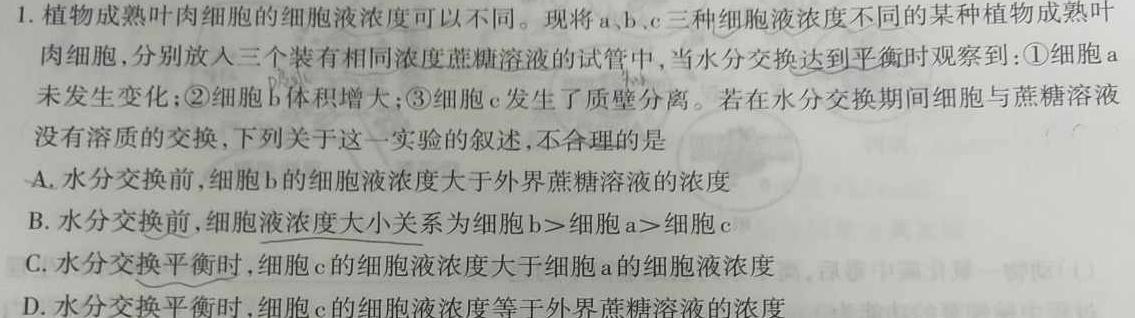 1. 植物成熟叶肉细胞的细胞液浓度可以不同。现将a、b、c三种细胞液浓度不同的某种植物成熟叶
肉细胞,分别放入三个装有相同浓度蔗糖溶液的试管中,当水分交换达到平衡时观察到:①细胞a
未发生变化;②细胞b体积增大;③细胞c发生了质壁分离。若在水分交换期间细胞与蔗糖溶液
没有溶质的交换,下列关于这一实验的叙述,不合理的是
A. 水分交换前,细胞b的细胞液浓度大于外界蔗糖溶液的浓度
B. 水分交换前,细胞液浓度大小关系为细胞b>细胞a>细胞c
C. 水分交换平衡时,细胞c的细胞液浓度大于细胞a的细胞液浓度
D. 水分交换平衡时,细胞c的细胞液浓度等于外界蔗糖溶液的浓度